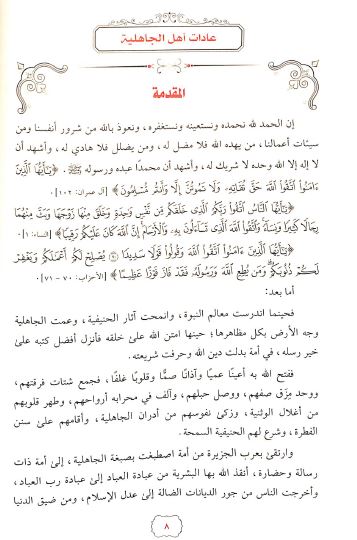 عادات أهل الجاهلية
المقدمة
إن الحمد لله نحمده ونستعينه ونستغفره، ونعوذ بالله من شرور أنفسنا ومن
سيئات أعمالنا، من يهده الله فلا مضل له، ومن يضلل فلا هادي له، وأشهد أن
لا إله إلا الله وحده لا شريك له، وأشهد أن محمدًا عبده ورسوله ﷺ، ﴿يَٰٓأَيُّهَا ٱلَّذِينَ
ءَامَنُوا۟ ٱتَّقُوا۟ ٱللَّهَ حَقَّ تُقَاتِهِۦ وَلَا تَمُوتُنَّ إِلَّا وَأَنتُم مُّسْلِمُونَ﴾ [آل عمران: ١٠٢].
﴿يَٰٓأَيُّهَا ٱلنَّاسُ ٱتَّقُوا۟ رَبَّكُمُ ٱلَّذِى خَلَقَكُم مِّن نَّفْسٍ وَٰحِدَةٍ وَخَلَقَ مِنْهَا زَوْجَهَا وَبَثَّ مِنْهُمَا
رِجَالًا كَثِيرًا وَنِسَآءً وَٱتَّقُوا۟ ٱللَّهَ ٱلَّذِى تَسَآءَلُونَ بِهِۦ وَٱلْأَرْحَامَ إِنَّ ٱللَّهَ كَانَ عَلَيْكُمْ رَقِيبًا﴾ [النساء: ١].
﴿يَٰٓأَيُّهَا ٱلَّذِينَ ءَامَنُوا۟ ٱتَّقُوا۟ ٱللَّهَ وَقُولُوا۟ قَوْلًا سَدِيدًا ۝ يُصْلِحْ لَكُمْ أَعْمَٰلَكُمْ وَيَغْفِرْ
لَكُمْ ذُنُوبَكُمْ وَمَن يُطِعِ ٱللَّهَ وَرَسُولَهُۥ فَقَدْ فَازَ فَوْزًا عَظِيمًا﴾ [الأحزاب: ٧٠ - ٧١].
أما بعد:
فحينما اندرست معالم النبوة، وانمحت آثار الحنيفية، وعمت الجاهلية
وجه الأرض بكل مظاهرها؛ حينها امتن الله على خلقه فأنزل أفضل كتبه على
خير رسله، في أمة بدلت دين الله وحرفت شريعته.
ففتح الله به أعينًا عميًا وآذانًا صمًّا وقلوبًا غلفًا، فجمع شتات فرقتهم،
ووحد مِزَق صفهم، ووصل حبلهم، وآلف في محرابه أرواحهم، وطهر قلوبهم
من أغلال الوثنية، وزكى نفوسهم من أدران الجاهلية، وأقامهم على سنن
الفطرة، وشرع لهم الحنيفية السمحة.
وارتقى بعرب الجزيرة من أمة اصطبغت بصبغة الجاهلية، إلى أمة ذات
رسالة وحضارة، أنقذ الله بها البشرية من عبادة العباد إلى عبادة رب العباد،
وأخرجت الناس من جور الديانات الضالة إلى عدل الإسلام، ومن ضيق الدنيا
٨